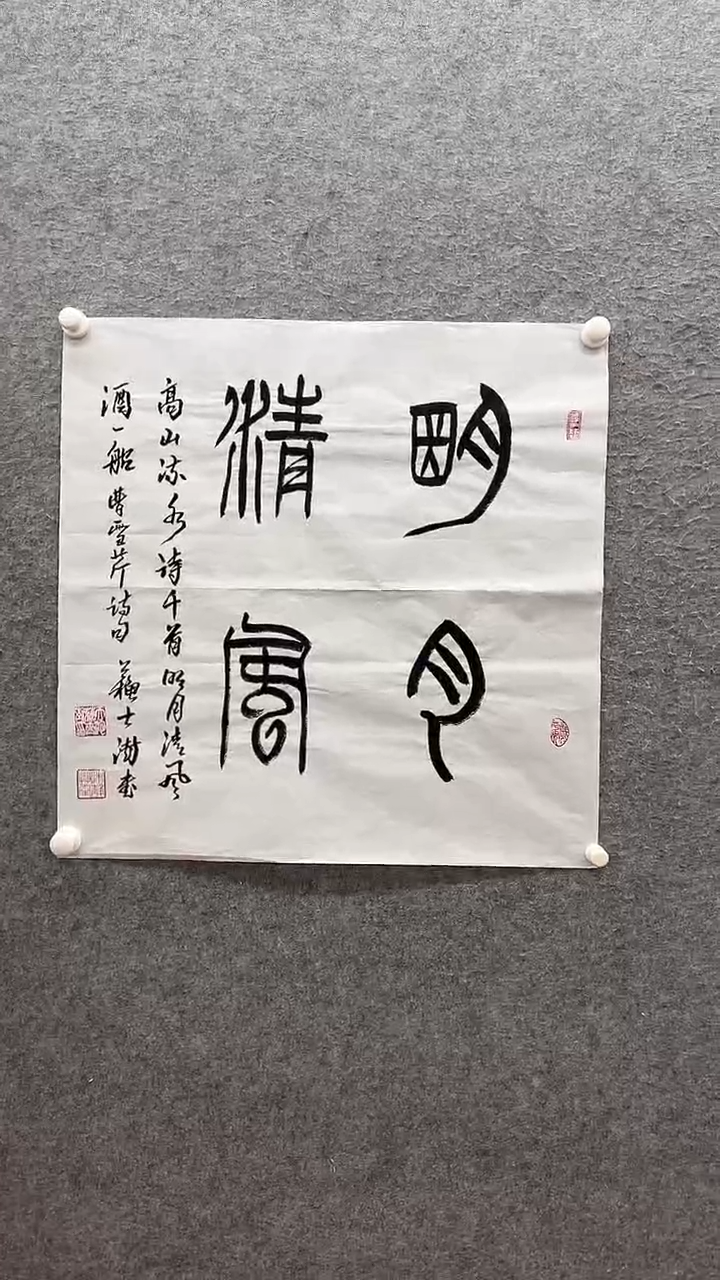 明月
清风
高山流水诗千首明月清风
酒一船曹雪芹诗句 苏士澍书